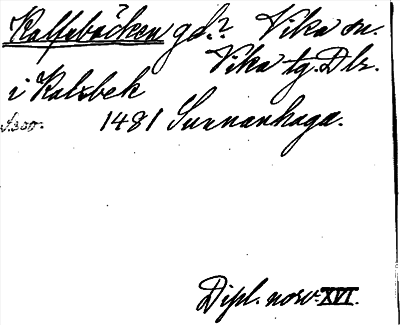 Kalfsbäcken gd.? Vika sn.
Vika tg. Dlr.
i Kalsbek
1481 Sunnanhaga.
Dipl. norv. XVI.